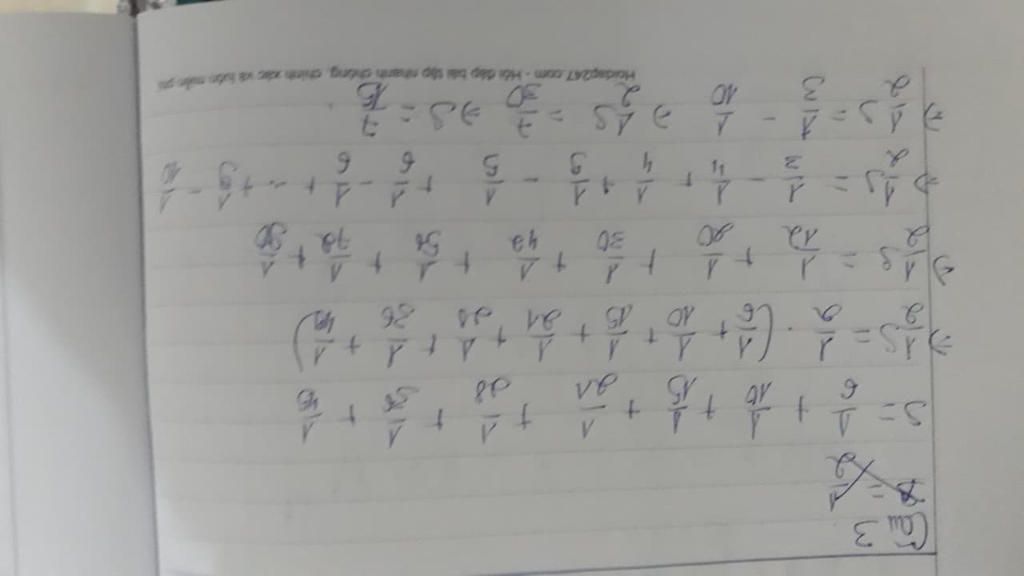 Câu 3
S = 1/2
S = 1/6 + 1/10 + 1/15 + 1/21 + 1/28 + 1/36 + 1/45
=> 1/2 S = 1/2 . (1/6 + 1/10 + 1/15 + 1/21 + 1/28 + 1/36 + 1/45)
=> 1/2 S = 1/12 + 1/20 + 1/30 + 1/42 + 1/56 + 1/72 + 1/90
=> 1/2 S = 1/3 - 1/4 + 1/4 + 1/5 - 1/5 + 1/6 - 1/6 + ... + 1/9 - 1/10
=> 1/2 S = 1/3 - 1/10 => 1/2 S = 7/30 => S = 7/15 .
Hoidap247.com - Hỏi đáp bài tập nhanh chóng, chính xác và luôn miễn phí